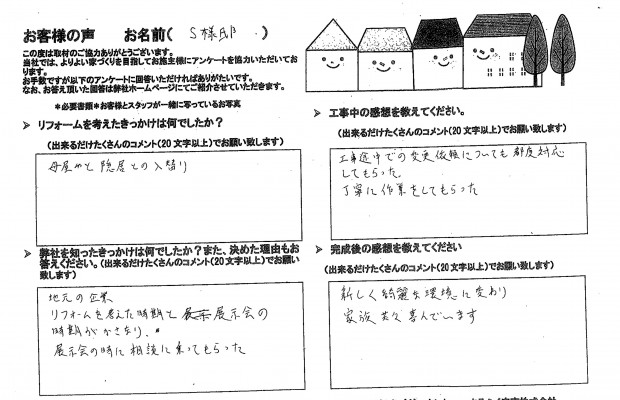 お客様の声 お名前( S様邸 )
この度は取材のご協力ありがとうございます。
当社では、よりよい家づくりを目指してお施主様にアンケートを協力いただいてお
ります。
お手数ですが以下のアンケートに回答いただければありがたいです。
なお、お答え頂いた回答は弊社ホームページにてご紹介させていただきます。
*必要書類*お客様とスタッフが一緒に写っているお写真
➤ リフォームを考えたきっかけは何でしたか?
(出来るだけたくさんのコメント(20文字以上)でお願い致します)
母屋やと隠居との入替り
➤ 弊社を知ったきっかけは何でしたか?また、決めた理由もお
答えください。(出来るだけたくさんのコメント(20文字以上)でお願い
致します)
地元の企業
リフォームを考えた時期と 展示会の
時期がかさなり、
展示会の時に相談に乗ってもらった
➤ 工事中の感想を教えてください。
(出来るだけたくさんのコメント(20文字以上)でお願い致します)
工事途中での変更依頼についても都度対応
してもらった
丁寧に作業をしてもらった
➤ 完成後の感想を教えてください
(出来るだけたくさんのコメント(20文字以上)でお願い致します)
新しく綺麗な環境に変わり
家族共々喜んでいます